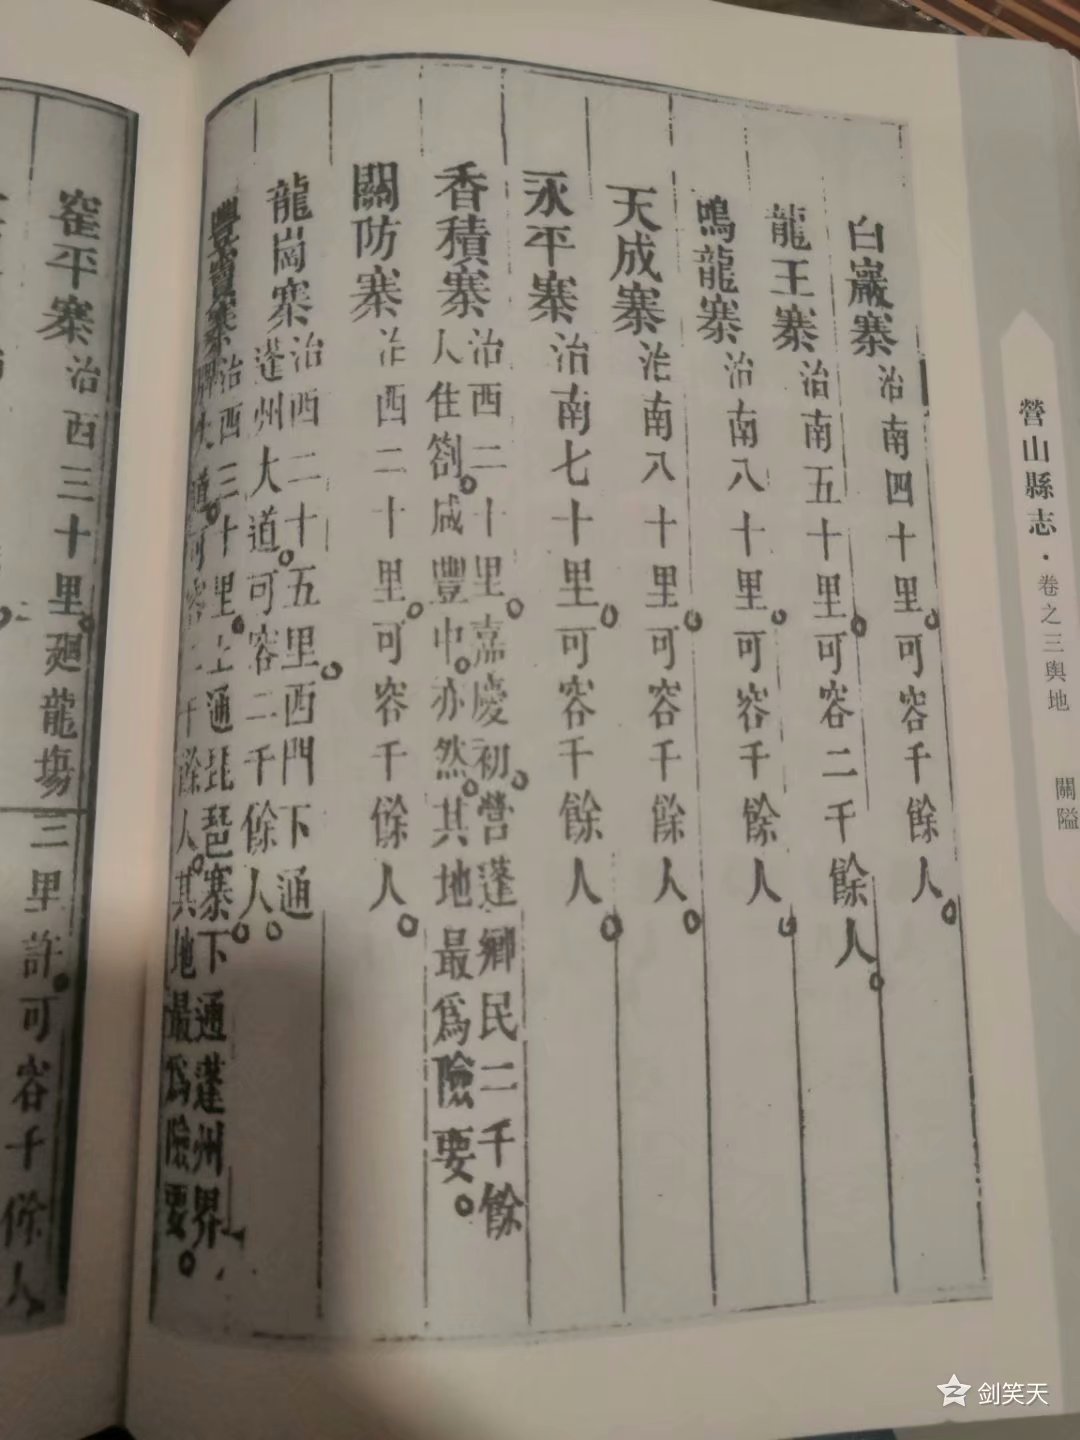 營山縣志·卷之三輿地 關隘
白巖寨治南四十里。可容千餘人。
龍王寨治南五十里。可容二千餘人。
鳴龍寨治南八十里。可容千餘人。
天成寨治南八十里。可容千餘人。
永平寨治南七十里。可容千餘人。
香積寨治西二十里。嘉慶初。營蓬鄉民二千餘
人住劄。咸豐中。亦然。其地最爲險要。
關防寨治西二十里。可容千餘人。
龍崗寨治西二十五里。西門下通
蓬州大道。可容二千餘人。
寨治西三十里。上通琵琶寨。下通蓬州界
大道。可容二千餘人。其地最爲險要。
窰平寨治西三十里。廻龍場
二里許。可容千餘人
剑笑天